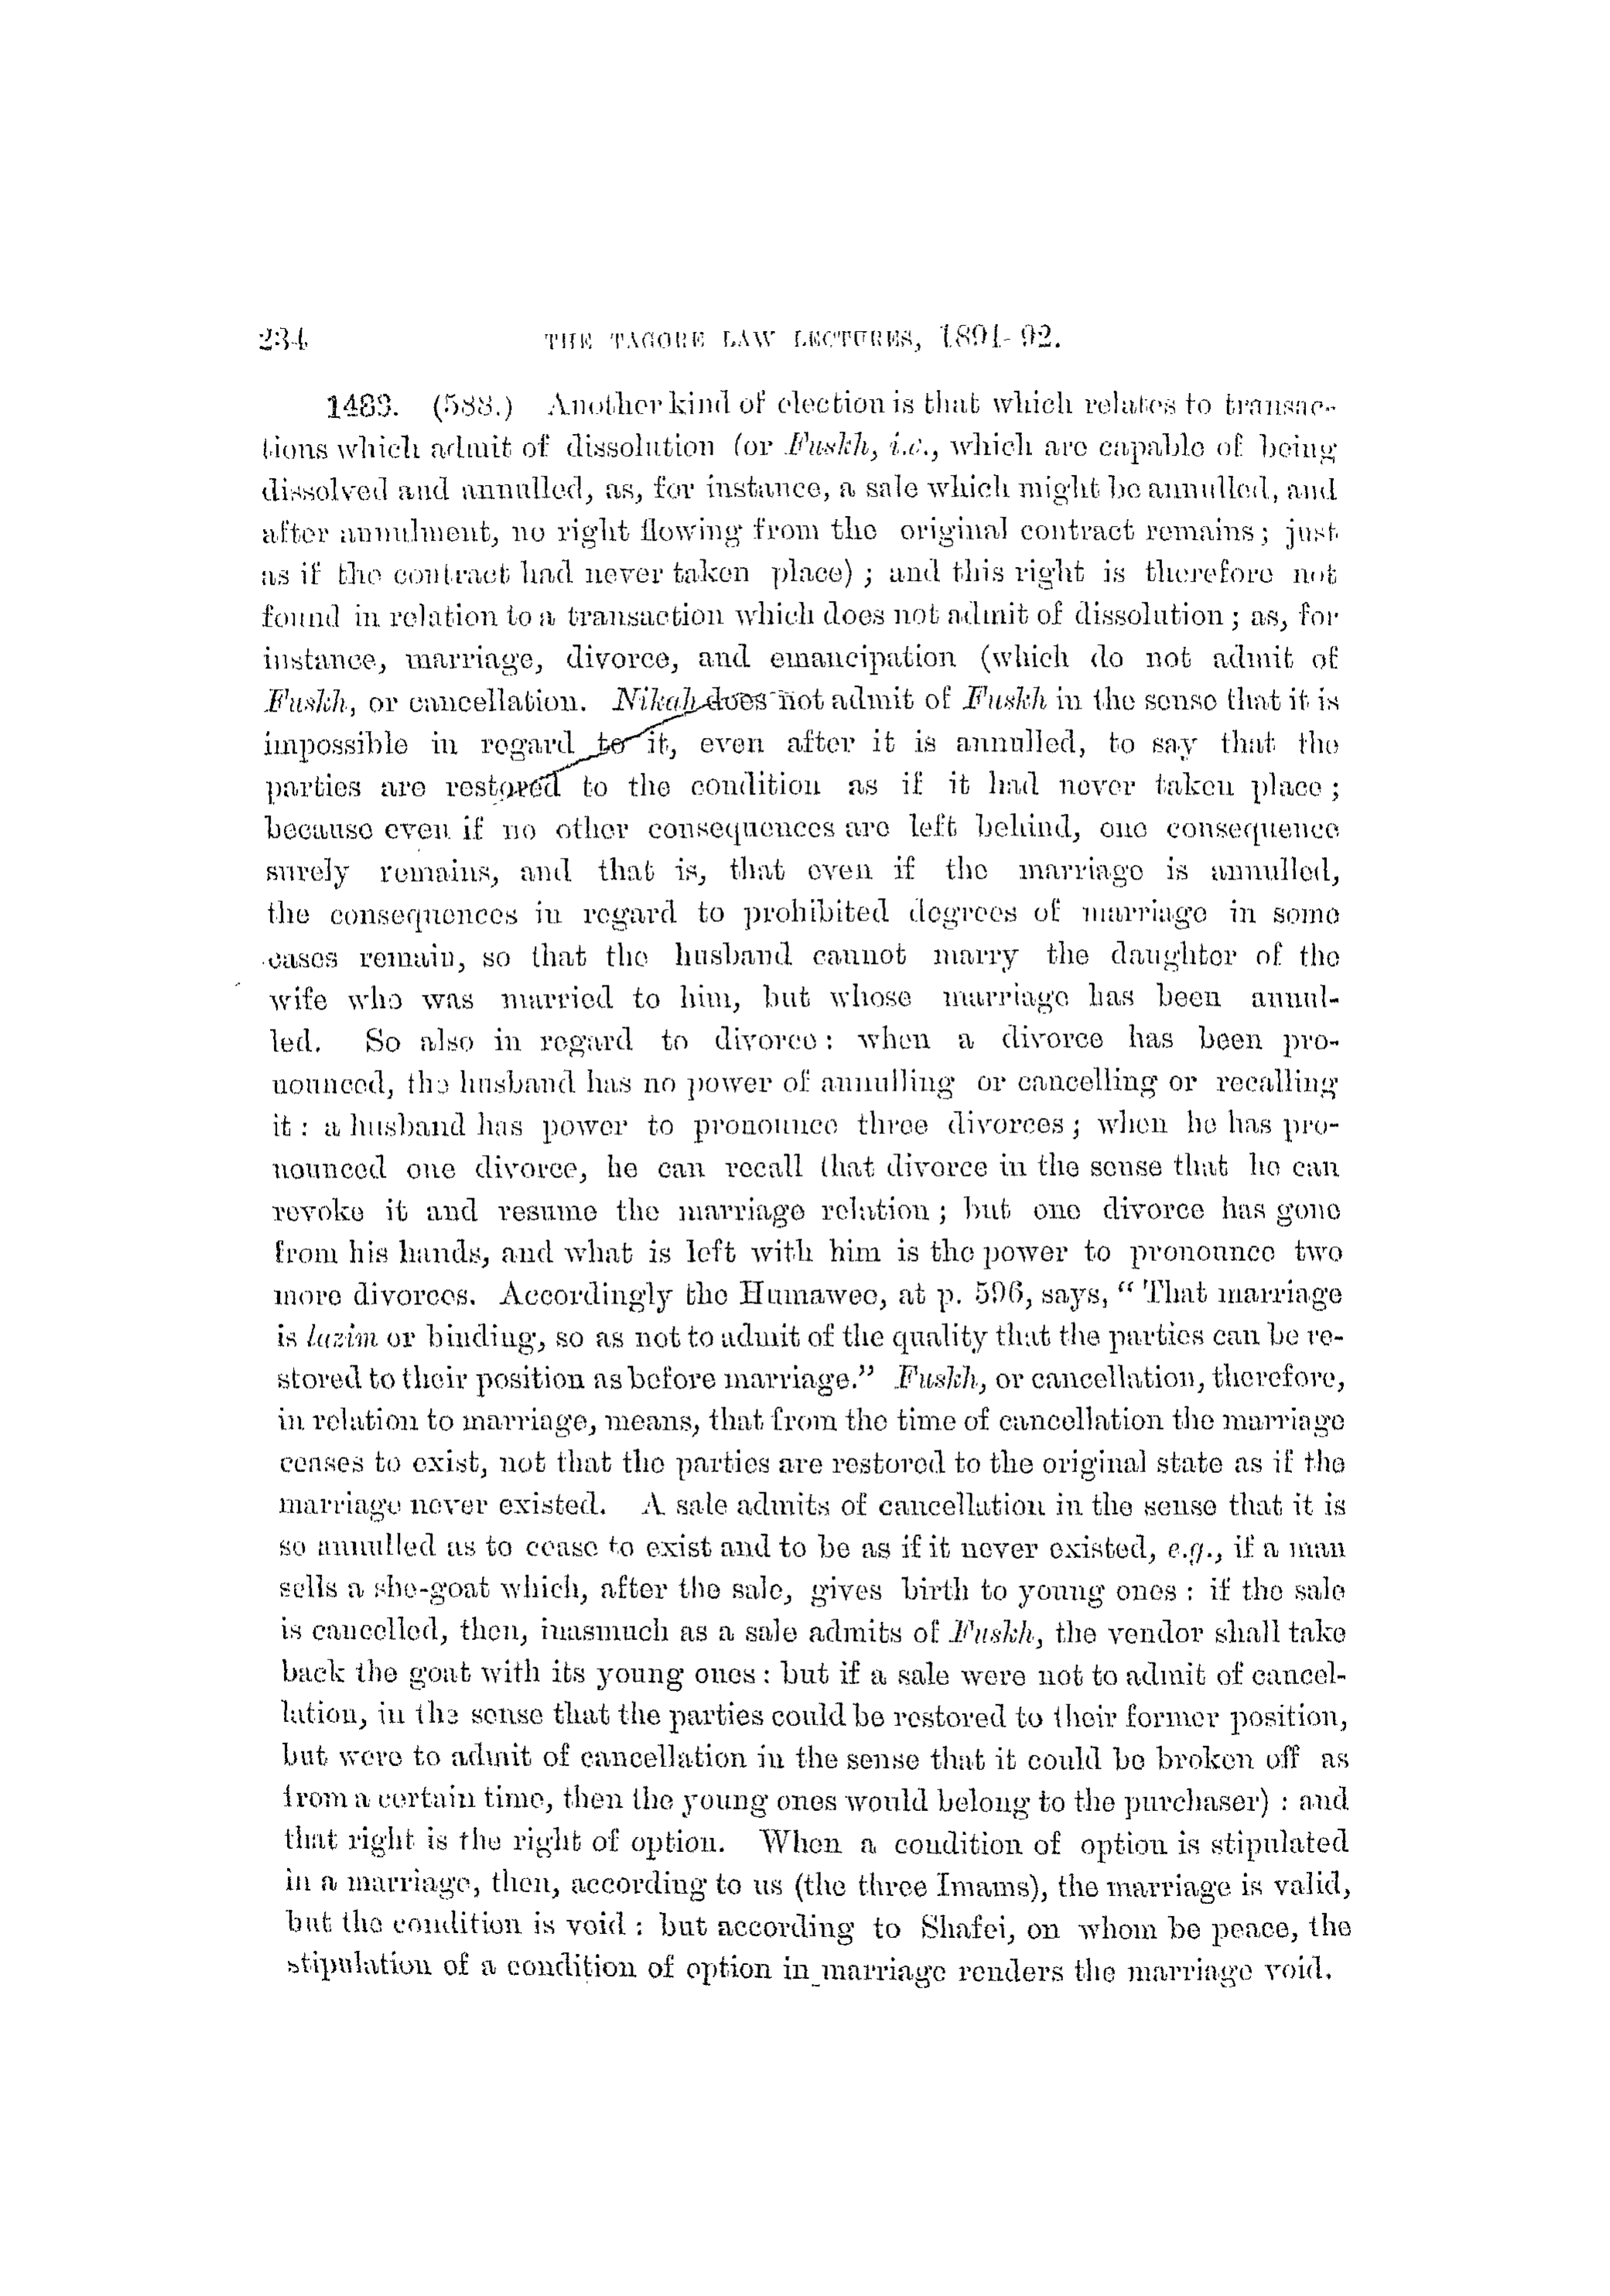 234 THE TAGORE LAW LECTURES, 1891-92.
1489. (588.) Another kind of election is that which relates to transac-
tions which admit of dissolution (or Fuskh, i.e., which are capable of being
dissolved and annulled, as, for instance, a sale which might be annulled, and
after annulment, no right flowing from the original contract remains; just
as if the contract had never taken place); and this right is therefore not
found in relation to a transaction which does not admit of dissolution; as, for
instance, marriage, divorce, and emancipation (which do not admit of
Fuskh, or cancellation. Nikah does not admit of Fuskh in the sense that it is
impossible in regard to it, even after it is annulled, to say that the
parties are restored to the condition as if it had never taken place;
because even if no other consequences are left behind, one consequence
surely remains, and that is, that even if the marriage is annulled,
the consequences in regard to prohibited degrees of marriage in some
cases remain, so that the husband cannot marry the daughter of the
wife who was married to him, but whose marriage has been annul-
led. So also in regard to divorce: when a divorce has been pro-
nounced, the husband has no power of annulling or cancelling or recalling
it: a husband has power to pronounce three divorces; when he has pro-
nounced one divorce, he can recall that divorce in the sense that he can
revoke it and resume the marriage relation; but one divorce has gone
from his hands, and what is left with him is the power to pronounce two
more divorces. Accordingly the Humawee, at p. 596, says, "That marriage
is lazim or binding, so as not to admit of the quality that the parties can be re-
stored to their position as before marriage." Fuskh, or cancellation, therefore,
in relation to marriage, means, that from the time of cancellation the marriage
ceases to exist, not that the parties are restored to the original state as if the
marriage never existed. A sale admits of cancellation in the sense that it is
so annulled as to cease to exist and to be as if it never existed, e.g., if a man
sells a she-goat which, after the sale, gives birth to young ones: if the sale
is cancelled, then, inasmuch as a sale admits of Fuskh, the vendor shall take
back the goat with its young ones: but if a sale were not to admit of cancel-
lation, in the sense that the parties could be restored to their former position,
but were to admit of cancellation in the sense that it could be broken off as
from a certain time, then the young ones would belong to the purchaser): and
that right is the right of option. When a condition of option is stipulated
in a marriage, then, according to us (the three Imams), the marriage is valid,
but the condition is void: but according to Shafei, on whom be peace, the
stipulation of a condition of option in marriage renders the marriage void.